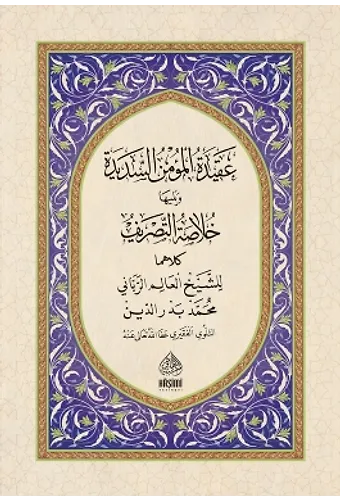 عَقِيدَةُ الْمُؤْمِنِ السَّدِيدَة
وَيَلِيهَا
خُلَاصَةُ التَّصْرِيفِ
كلاهما
لِلشَّيْخِ الْعَالِمِ الرَّبَّانِي
مُحَمَّد بَدْرِ الدِّينِ
عَفَا اللهُ تَعَالَى عَنْهُ
HAŞİMİ